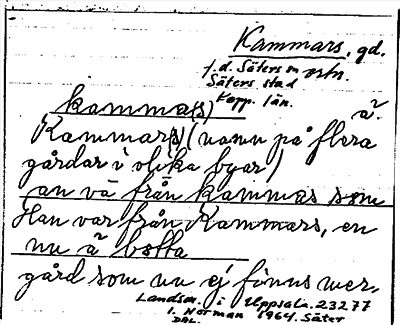 Kammars, gd.
f.d. Säters m ostn.
Säters stad
Kopp. län.
kamma(s)
Kammar(s) (namn på flera
gårdar i olika byar)
an vā från kammas som
Han var från Kammars, en
nu ä botta
gård som nu ej finns mer.
Landsm. i Uppsala. 23277
I. Norman 1964. Säter
DAL.